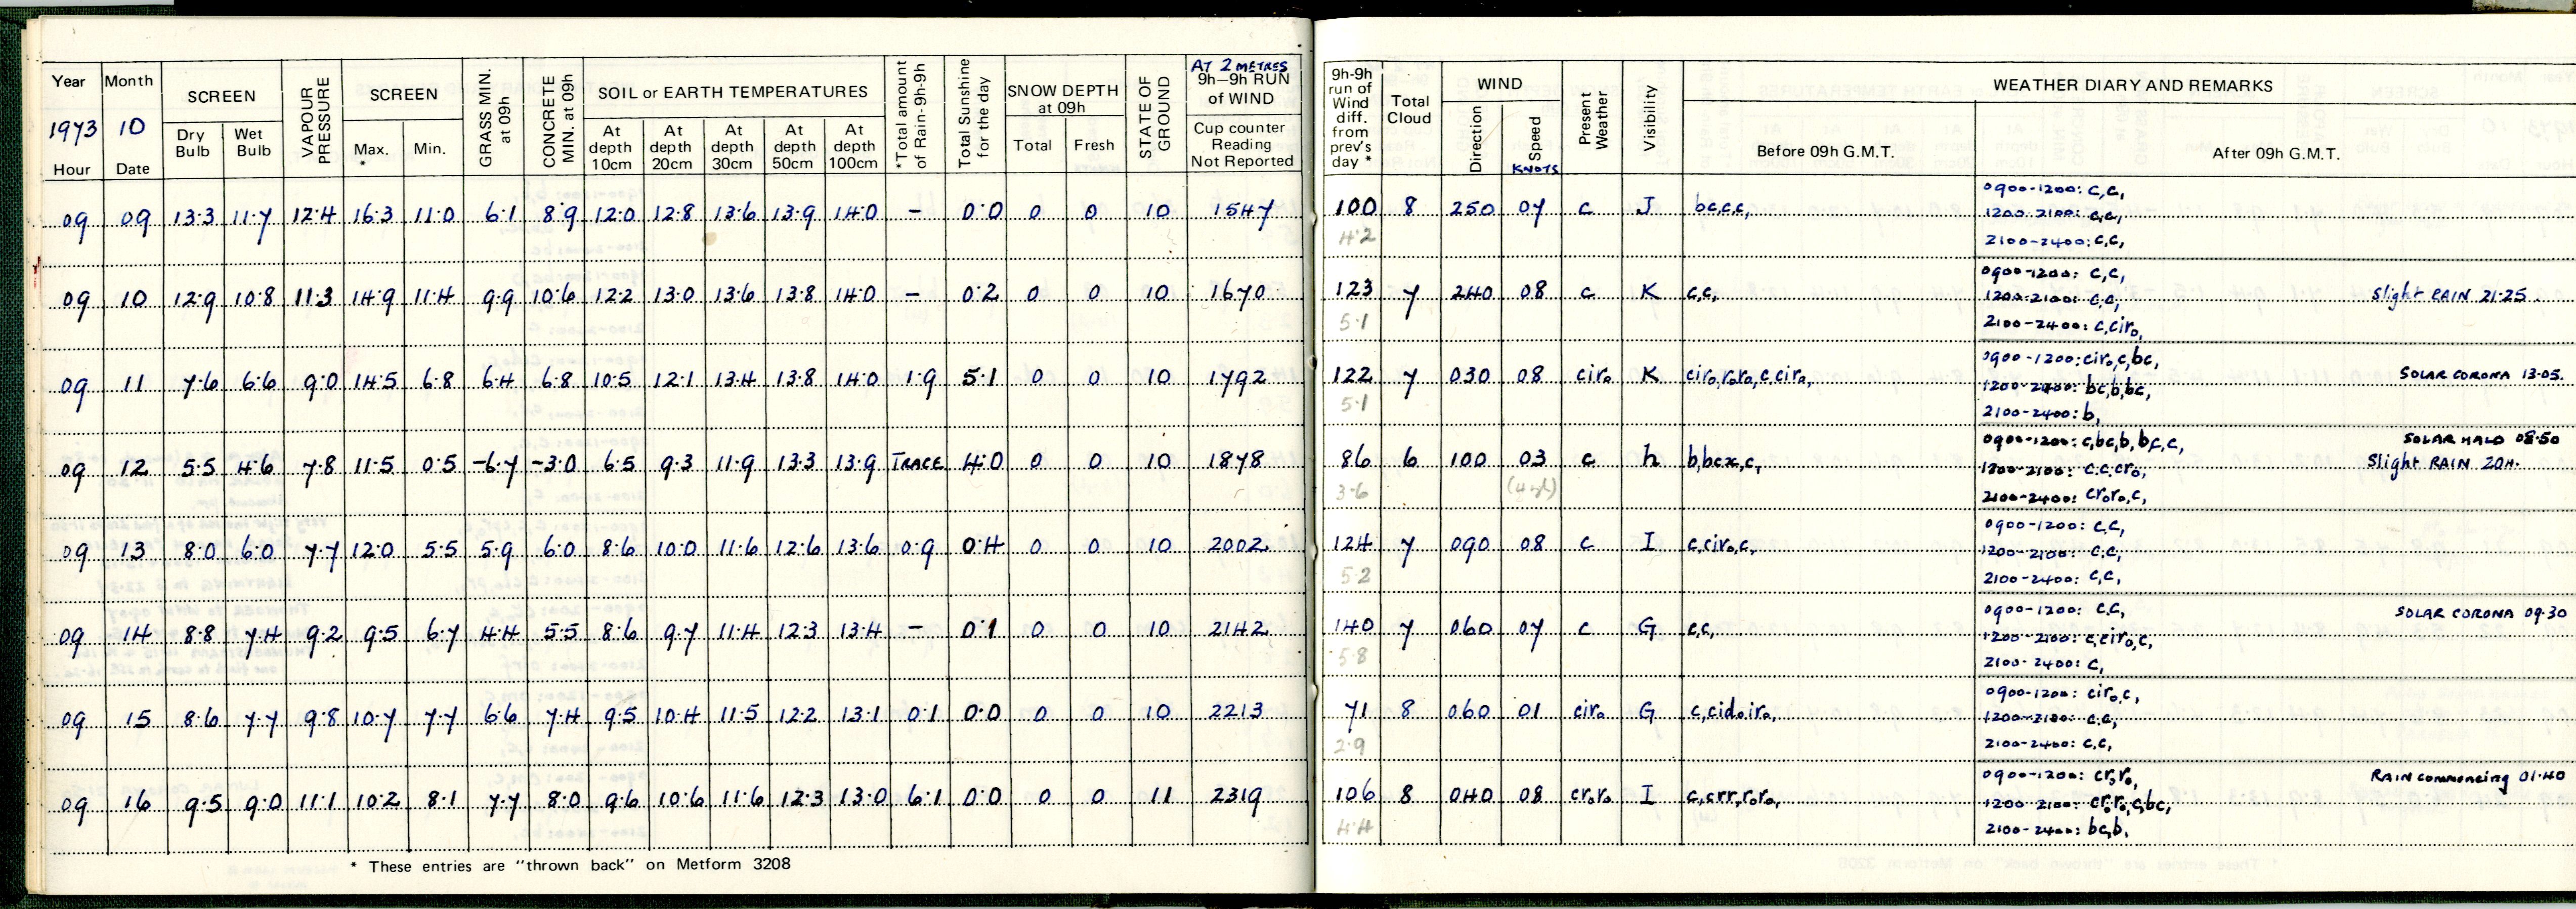 Year Month SCREEN VAPOUR PRESSURE SCREEN GRASS MIN. at 09h CONCRETE MIN. at 09h SOIL or EARTH TEMPERATURES *Total amount of Rain-9h-9h Total Sunshine for the day SNOW DEPTH at 09h STATE OF GROUND AT 2 METRES 9h-9h RUN of WIND
1973 10
Hour Date Dry Bulb Wet Bulb Max. * Min. At depth 10cm At depth 20cm At depth 30cm At depth 50cm At depth 100cm Total Fresh Cup counter Reading Not Reported
09 09 13.3 11.7 12.4 16.3 11.0 6.1 8.9 12.0 12.8 13.6 13.9 14.0 - 0.0 0 0 10 1547
09 10 12.9 10.8 11.3 14.9 11.4 9.9 10.6 12.2 13.0 13.6 13.8 14.0 - 0.2 0 0 10 1670
09 11 7.6 6.6 9.0 14.5 6.8 6.4 6.8 10.5 12.1 13.4 13.8 14.0 1.9 5.1 0 0 10 1792
09 12 5.5 4.6 7.8 11.5 0.5 -6.7 -3.0 6.5 9.3 11.9 13.3 13.9 TRACE 4.0 0 0 10 1878
09 13 8.0 6.0 7.7 12.0 5.5 5.9 6.0 8.6 10.0 11.6 12.6 13.6 0.9 0.4 0 0 10 2002
09 14 8.8 7.4 9.2 9.5 6.7 4.4 5.5 8.6 9.7 11.4 12.3 13.4 - 0.1 0 0 10 2142
09 15 8.6 7.7 9.8 10.7 7.7 6.6 7.4 9.5 10.4 11.5 12.2 13.1 0.1 0.0 0 0 10 2213
09 16 9.5 9.0 11.1 10.2 8.1 7.7 8.0 9.6 10.6 11.6 12.3 13.0 6.1 0.0 0 0 11 2319
* These entries are "thrown back" on Metform 3208
9h-9h run of Wind diff. from prev's day * Total Cloud WIND Direction Speed KNOTS Present Weather Visibility WEATHER DIARY AND REMARKS
Before 09h G.M.T. After 09h G.M.T.
0900-1200: c,c,
100 8 250 07 c J bc,c,c, 1200-2100: c,c,
4.2 2100-2400: c,c,
0900-1200: c,c,
123 7 240 08 c K c,c, 1200-2100: c,c, Slight RAIN 21.25
5.1 2100-2400: c,cir₀,
0900-1200: cir₀,c,bc,
122 7 030 08 cir₀ K cir₀,r₀r₀,c,cir₀, 1200-2400: bc,b,bc, SOLAR CORONA 13.05.
5.1 2100-2400: b,
0900-1200: c,bc,b,bc,c, SOLAR HALO 08.50
86 6 100 03 c h b,bcx,c, 1200-2100: c,c,cr₀, Slight RAIN 20H.
3.6 2100-2400: cr₀r₀,c,
0900-1200: c,c,
124 7 090 08 c I c,cir₀,c, 1200-2100: c,c,
5.2 2100-2400: c,c,
0900-1200: c,c, SOLAR CORONA 09.30
140 7 060 07 c G c,c, 1200-2100: c,cir₀,c,
5.8 2100-2400: c,
0900-1200: cir₀,c,
71 8 060 01 cir₀ G c,cid₀ir₀, 1200-2100: c,c,
2.9 2100-2400: c,c,
0900-1200: cr₀r₀, RAIN commencing 01.40
106 8 040 08 cr₀r₀ I c,crr,r₀r₀, 1200-2100: cr₀r₀,c,bc,
4.4 2100-2400: bc,b,